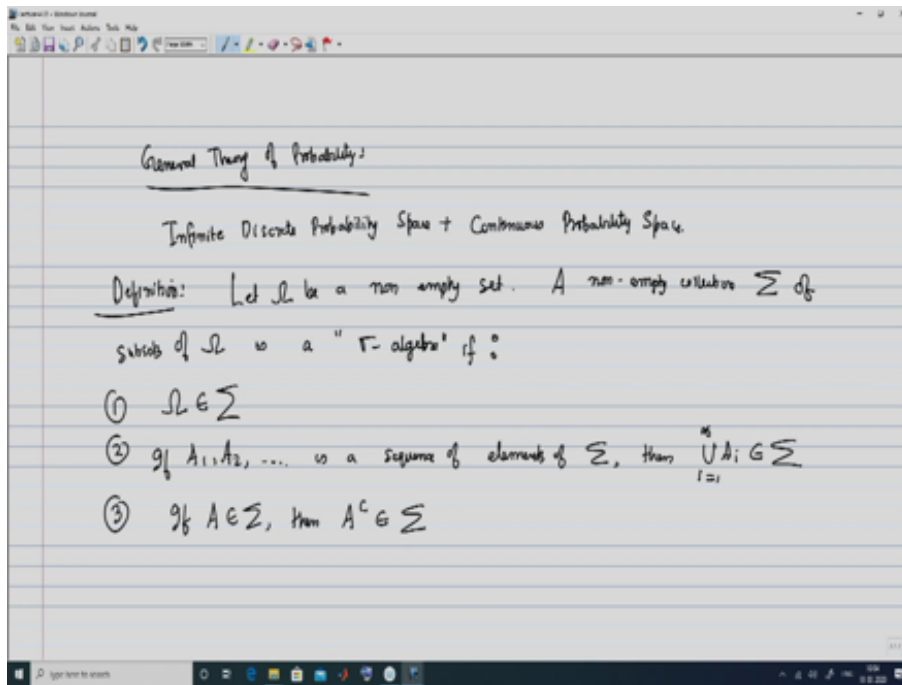 File Edit View Insert Actions Tools Help
General Theory of Probability:
Infinite Discrete Probability Space + Continuous Probability Space.
Definition: Let Ω be a non empty set. A non-empty collection Σ of
subsets of Ω is a "σ- algebra" if :
① Ω ∈ Σ
② If A₁, A₂, .... is a sequence of elements of Σ, then ∞⋃i=1 Aᵢ ∈ Σ
③ If A ∈ Σ, then Aᶜ ∈ Σ
Type here to search